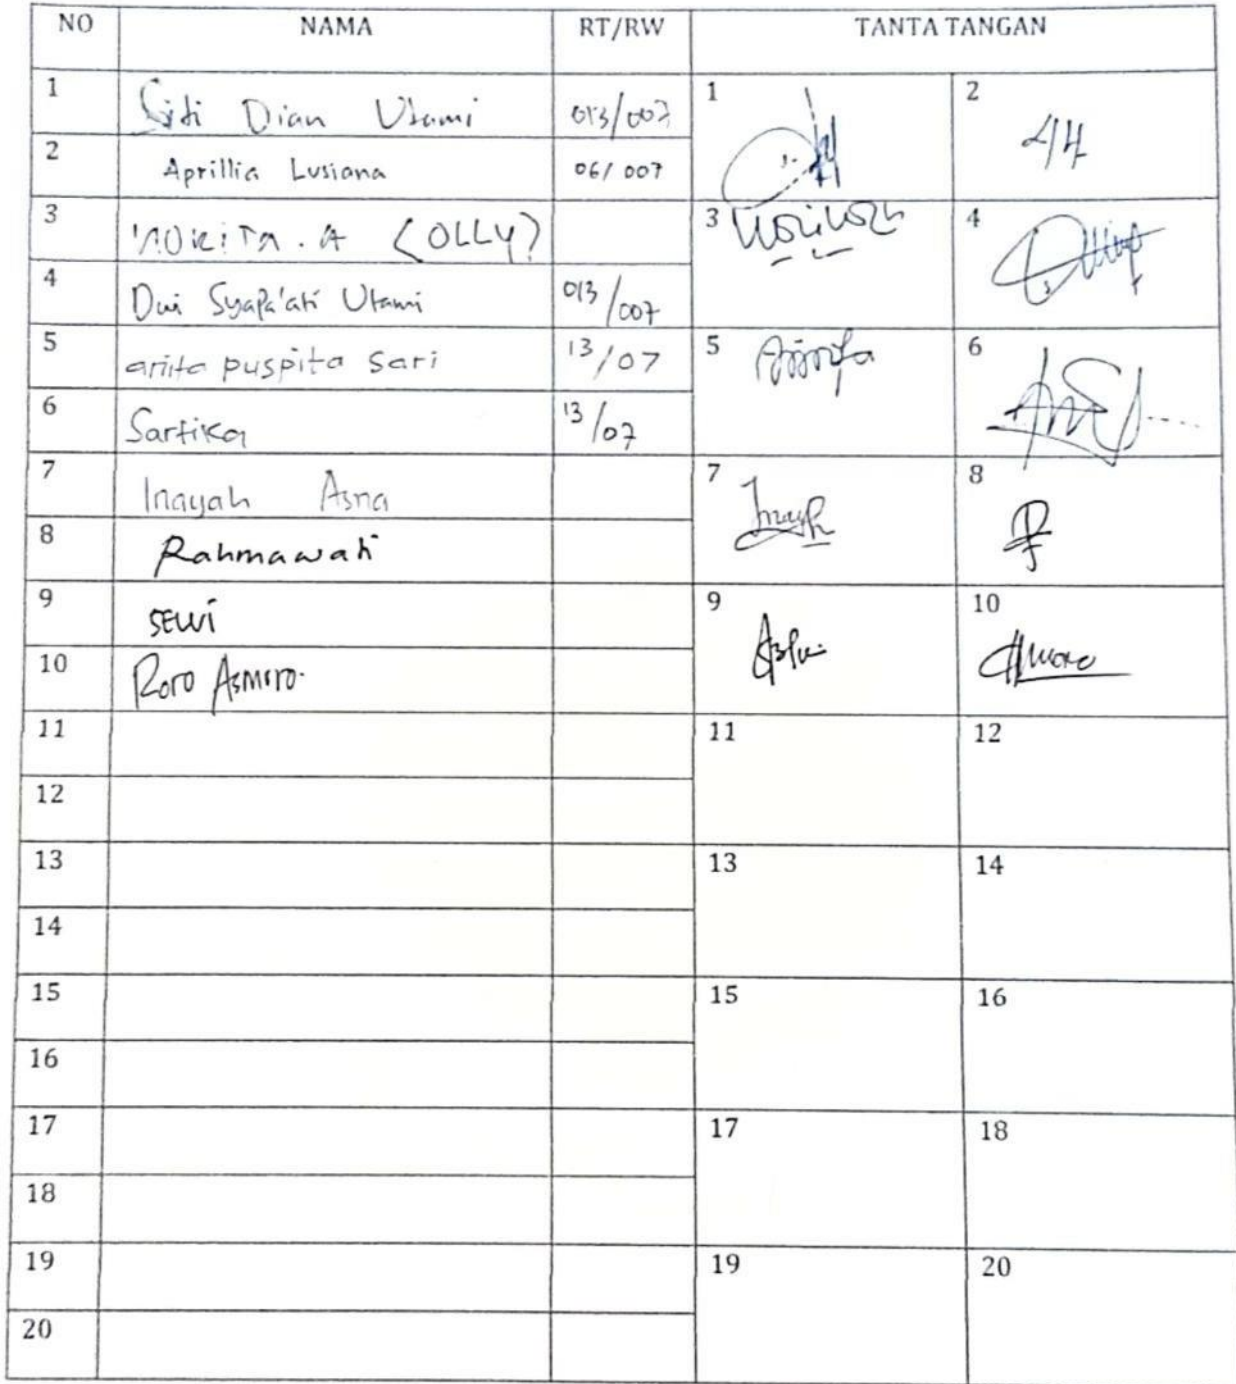 NO NAMA RT/RW TANTA TANGAN
1 Siti Dian Utami 013/007 1 2
2 Aprillia Lusiana 06/007
3 NORITA . A (OLLY) 3 4
4 Dwi Syapa'ati Utami 013/007
5 arita puspita sari 13/07 5 6
6 Sartika 13/07
7 Inayah Asna 7 8
8 Rahmawati
9 SELVI 9 10
10 Roro Asmoro.
11 11 12
12
13 13 14
14
15 15 16
16
17 17 18
18
19 19 20
20